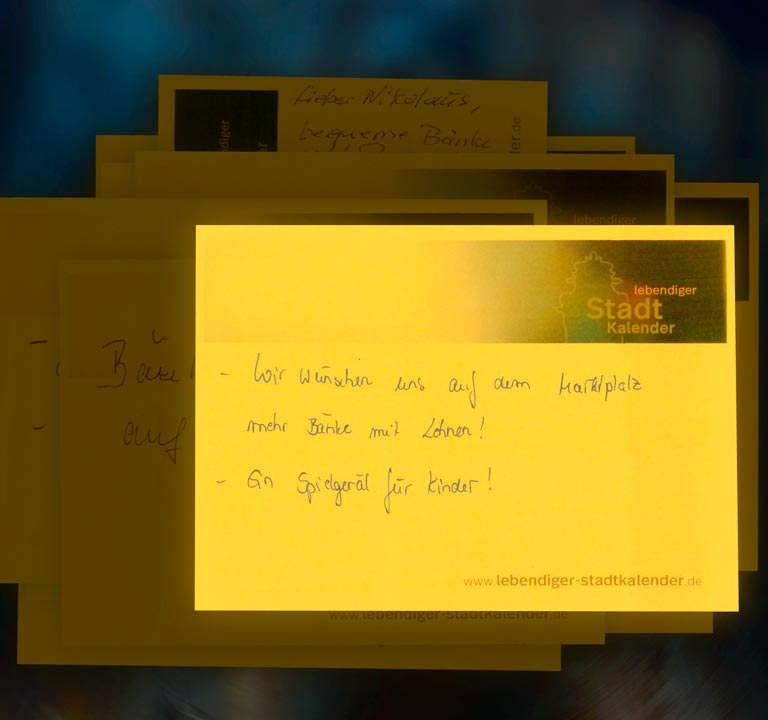 lieber Nikolaus,
bequeme Bänke
lebendiger
.de
lebendiger
lebendiger
Stadt
Kalender
- Wir wünschen uns auf dem Marktplatz
mehr Bänke mit Lehnen!
- Ein Spielgerät für Kinder!
auf
www.lebendiger-stadtkalender.de
www.lebendiger-stadtkalender.de